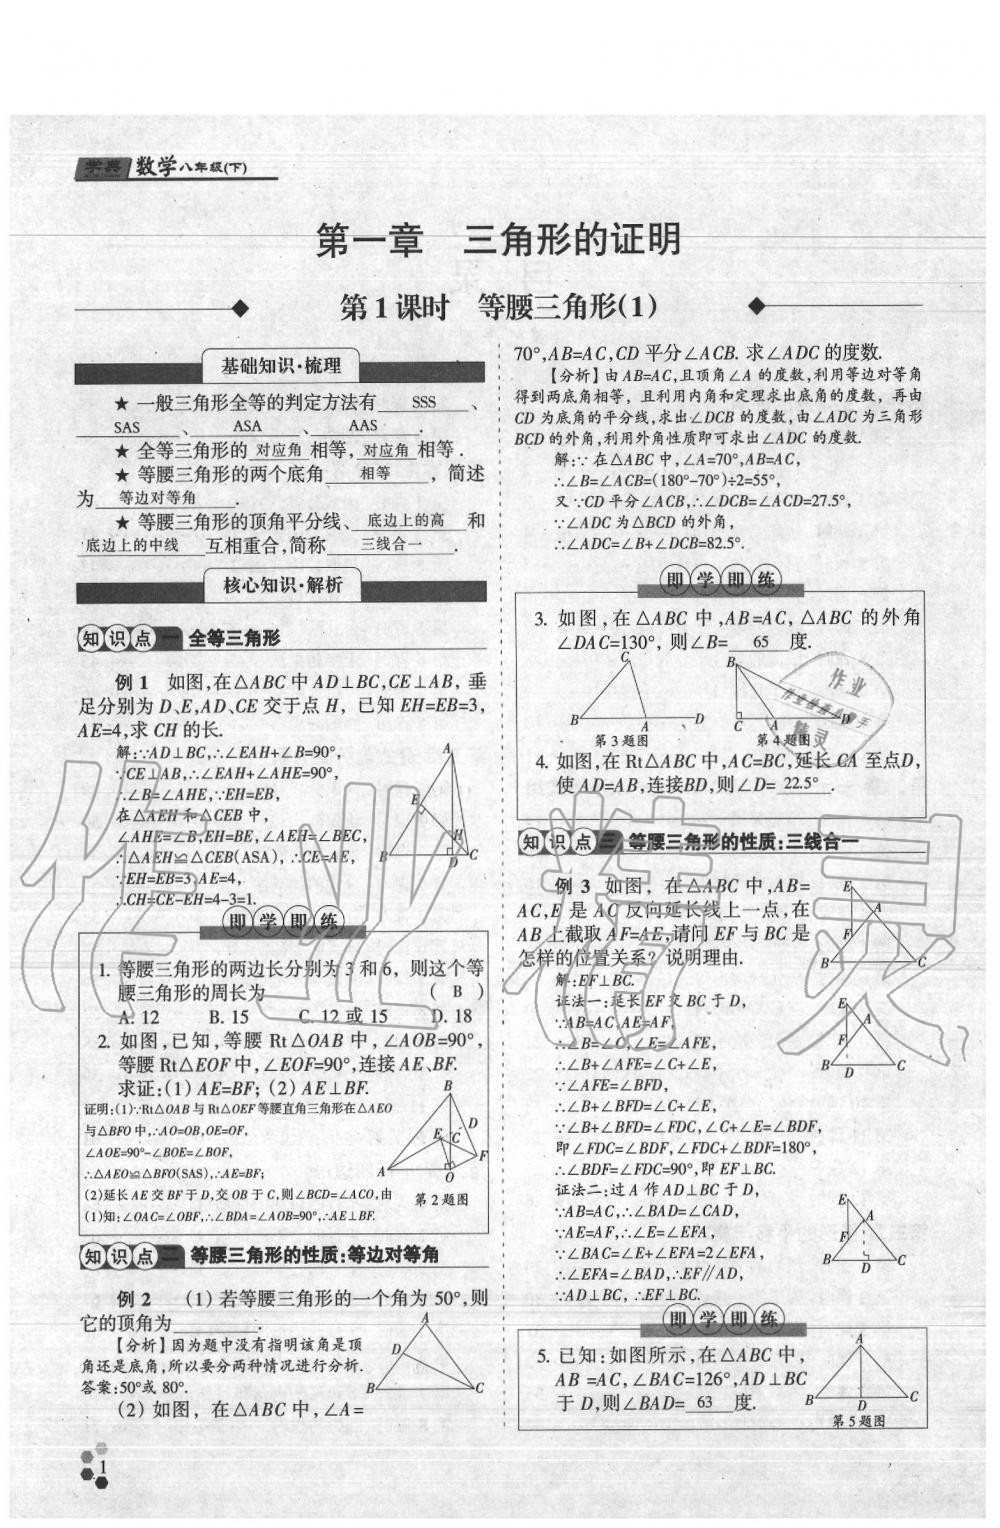 学典 数学八年级(下)
XUEDIAN
第一章 三角形的证明
第1课时 等腰三角形(1)
基础知识·梳理
★ 一般三角形全等的判定方法有 SSS 、
SAS 、 ASA 、 AAS .
★ 全等三角形的 对应角 相等, 对应角 相等.
★ 等腰三角形的两个底角 相等 ,简述
为 等边对等角 .
★ 等腰三角形的顶角平分线、 底边上的高 和
底边上的中线 互相重合,简称 三线合一 .
核心知识·解析
知识点一 全等三角形
例1 如图,在△ABC中AD⊥BC,CE⊥AB,垂
足分别为D、E,AD、CE交于点H,已知EH=EB=3,
AE=4,求CH的长.
解:∵AD⊥BC,∴∠EAH+∠B=90°,
∵CE⊥AB,∴∠EAH+∠AHE=90°,
∴∠B=∠AHE,∵EH=EB,
在△AEH和△CEB中,
∠AHE=∠B,EH=BE,∠AEH=∠BEC,
∴△AEH≌△CEB(ASA),∴CE=AE,
∵EH=EB=3,AE=4,
∴CH=CE-EH=4-3=1.
A
E
H
B
D
C
即学即练
1. 等腰三角形的两边长分别为3和6,则这个等
腰三角形的周长为 ( B )
A. 12 B. 15 C. 12或15 D. 18
2. 如图,已知,等腰Rt△OAB中,∠AOB=90°,
等腰Rt△EOF中,∠EOF=90°,连接AE、BF.
求证:(1)AE=BF;(2)AE⊥BF.
证明:(1)∵Rt△OAB与Rt△OEF等腰直角三角形在△AEO
与△BFO中,∴AO=OB,OE=OF,
∠AOE=90°-∠BOE=∠BOF,
∴△AEO≌△BFO(SAS),∴AE=BF;
(2)延长AE交BF于D,交OB于C,则∠BCD=∠ACO,由
(1)知:∠OAC=∠OBF,∴∠BDA=∠AOB=90°,∴AE⊥BF.
B
D
E
C
F
A
O
第2题图
知识点二 等腰三角形的性质:等边对等角
例2 (1)若等腰三角形的一个角为50°,则
它的顶角为 .
【分析】因为题中没有指明该角是顶
角还是底角,所以要分两种情况进行分析.
答案:50°或80°.
(2)如图,在△ABC中,∠A=
A
D
B
C
1
70°,AB=AC,CD平分∠ACB. 求∠ADC的度数.
【分析】由AB=AC,且顶角∠A的度数,利用等边对等角
得到两底角相等,且利用内角和定理求出底角的度数,再由
CD为底角的平分线,求出∠DCB的度数,由∠ADC为三角形
BCD的外角,利用外角性质即可求出∠ADC的度数.
解:∵在△ABC中,∠A=70°,AB=AC,
∴∠B=∠ACB=(180°-70°)÷2=55°,
又∵CD平分∠ACB,∴∠DCB=∠ACD=27.5°,
∵∠ADC为△BCD的外角,
∴∠ADC=∠B+∠DCB=82.5°.
即学即练
3. 如图,在△ABC中,AB=AC,△ABC的外角
∠DAC=130°,则∠B= 65 度.
C
B
A
D
第3题图
B
C
A
D
第4题图
4. 如图,在Rt△ABC中,AC=BC,延长CA至点D,
使AD=AB,连接BD,则∠D= 22.5° .
知识点三 等腰三角形的性质:三线合一
例3 如图,在△ABC中,AB=
AC,E是AC反向延长线上一点,在
AB上截取AF=AE,请问EF与BC是
怎样的位置关系?说明理由.
解:EF⊥BC.
证法一:延长EF交BC于D,
∵AB=AC,AE=AF,
∴∠B=∠C,∠E=∠AFE,
∴∠B+∠AFE=∠C+∠E,
∵∠AFE=∠BFD,
∴∠B+∠BFD=∠C+∠E,
∵∠B+∠BFD=∠FDC,∠C+∠E=∠BDF,
即∠FDC=∠BDF,∠FDC+∠BDF=180°,
∴∠BDF=∠FDC=90°,即EF⊥BC.
证法二:过A作AD⊥BC于D,
∵AB=AC,∴∠BAD=∠CAD,
∵AE=AF,∴∠E=∠EFA,
∵∠BAC=∠E+∠EFA=2∠EFA,
∴∠EFA=∠BAD,∴EF∥AD,
∵AD⊥BC,∴EF⊥BC.
E
A
F
B
C
E
A
F
B
D
C
E
A
F
B
D
C
即学即练
5. 已知:如图所示,在△ABC中,
AB=AC,∠BAC=126°,AD⊥BC
于D,则∠BAD= 63 度.
A
B
D
C
第5题图
作业精灵
作业
作业检查小助手
精灵